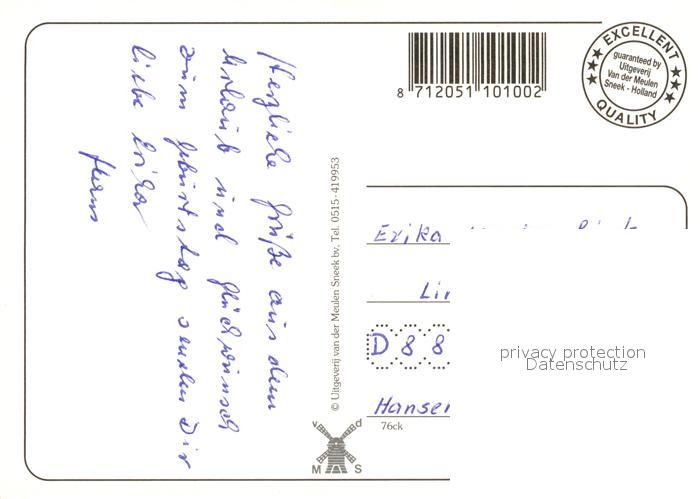 Herzliche Grüße aus dem
Urlaub und Glückwunsch
zum Geburtstag senden Dir
liebe Erika
8 712051 101002
EXCELLENT
guaranteed by
Uitgeverij
Van der Meulen
Sneek - Holland
QUALITY
© Uitgeverij van der Meulen Sneek bv, Tel. 0515-419953
Erika
D 8 8
76ck
v d
M S
privacy protection
Datenschutz